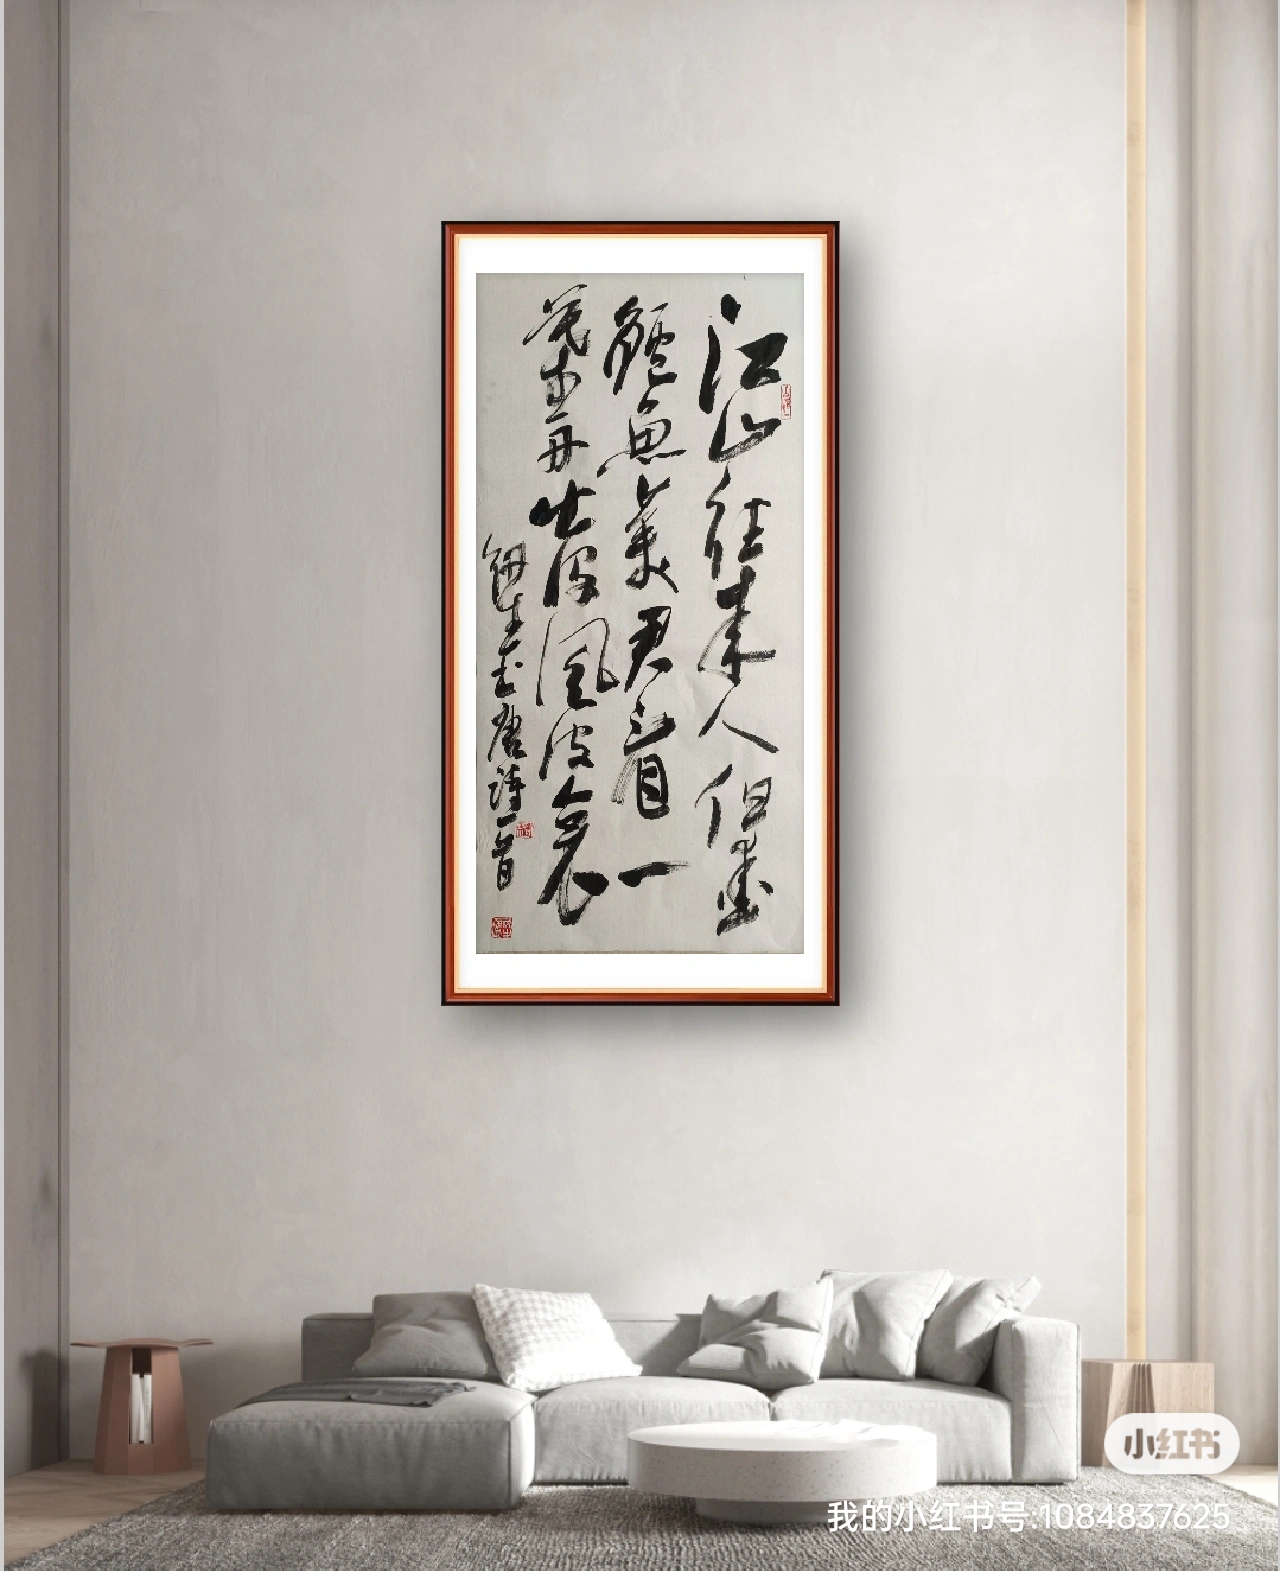 江上往来人但愛
鱸魚美君看一
葉舟出没風波裏
生书唐詩一首
小红书
我的小红书号:1084837625